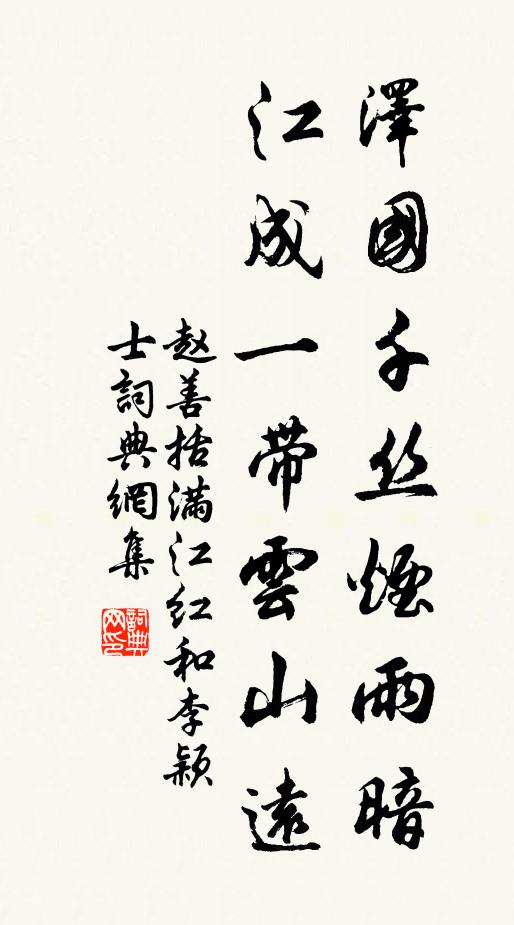 澤國千丝煙雨暗
江成一带雲山遠
赵善括满江红和李颖
士詞典網集
詞典
网印